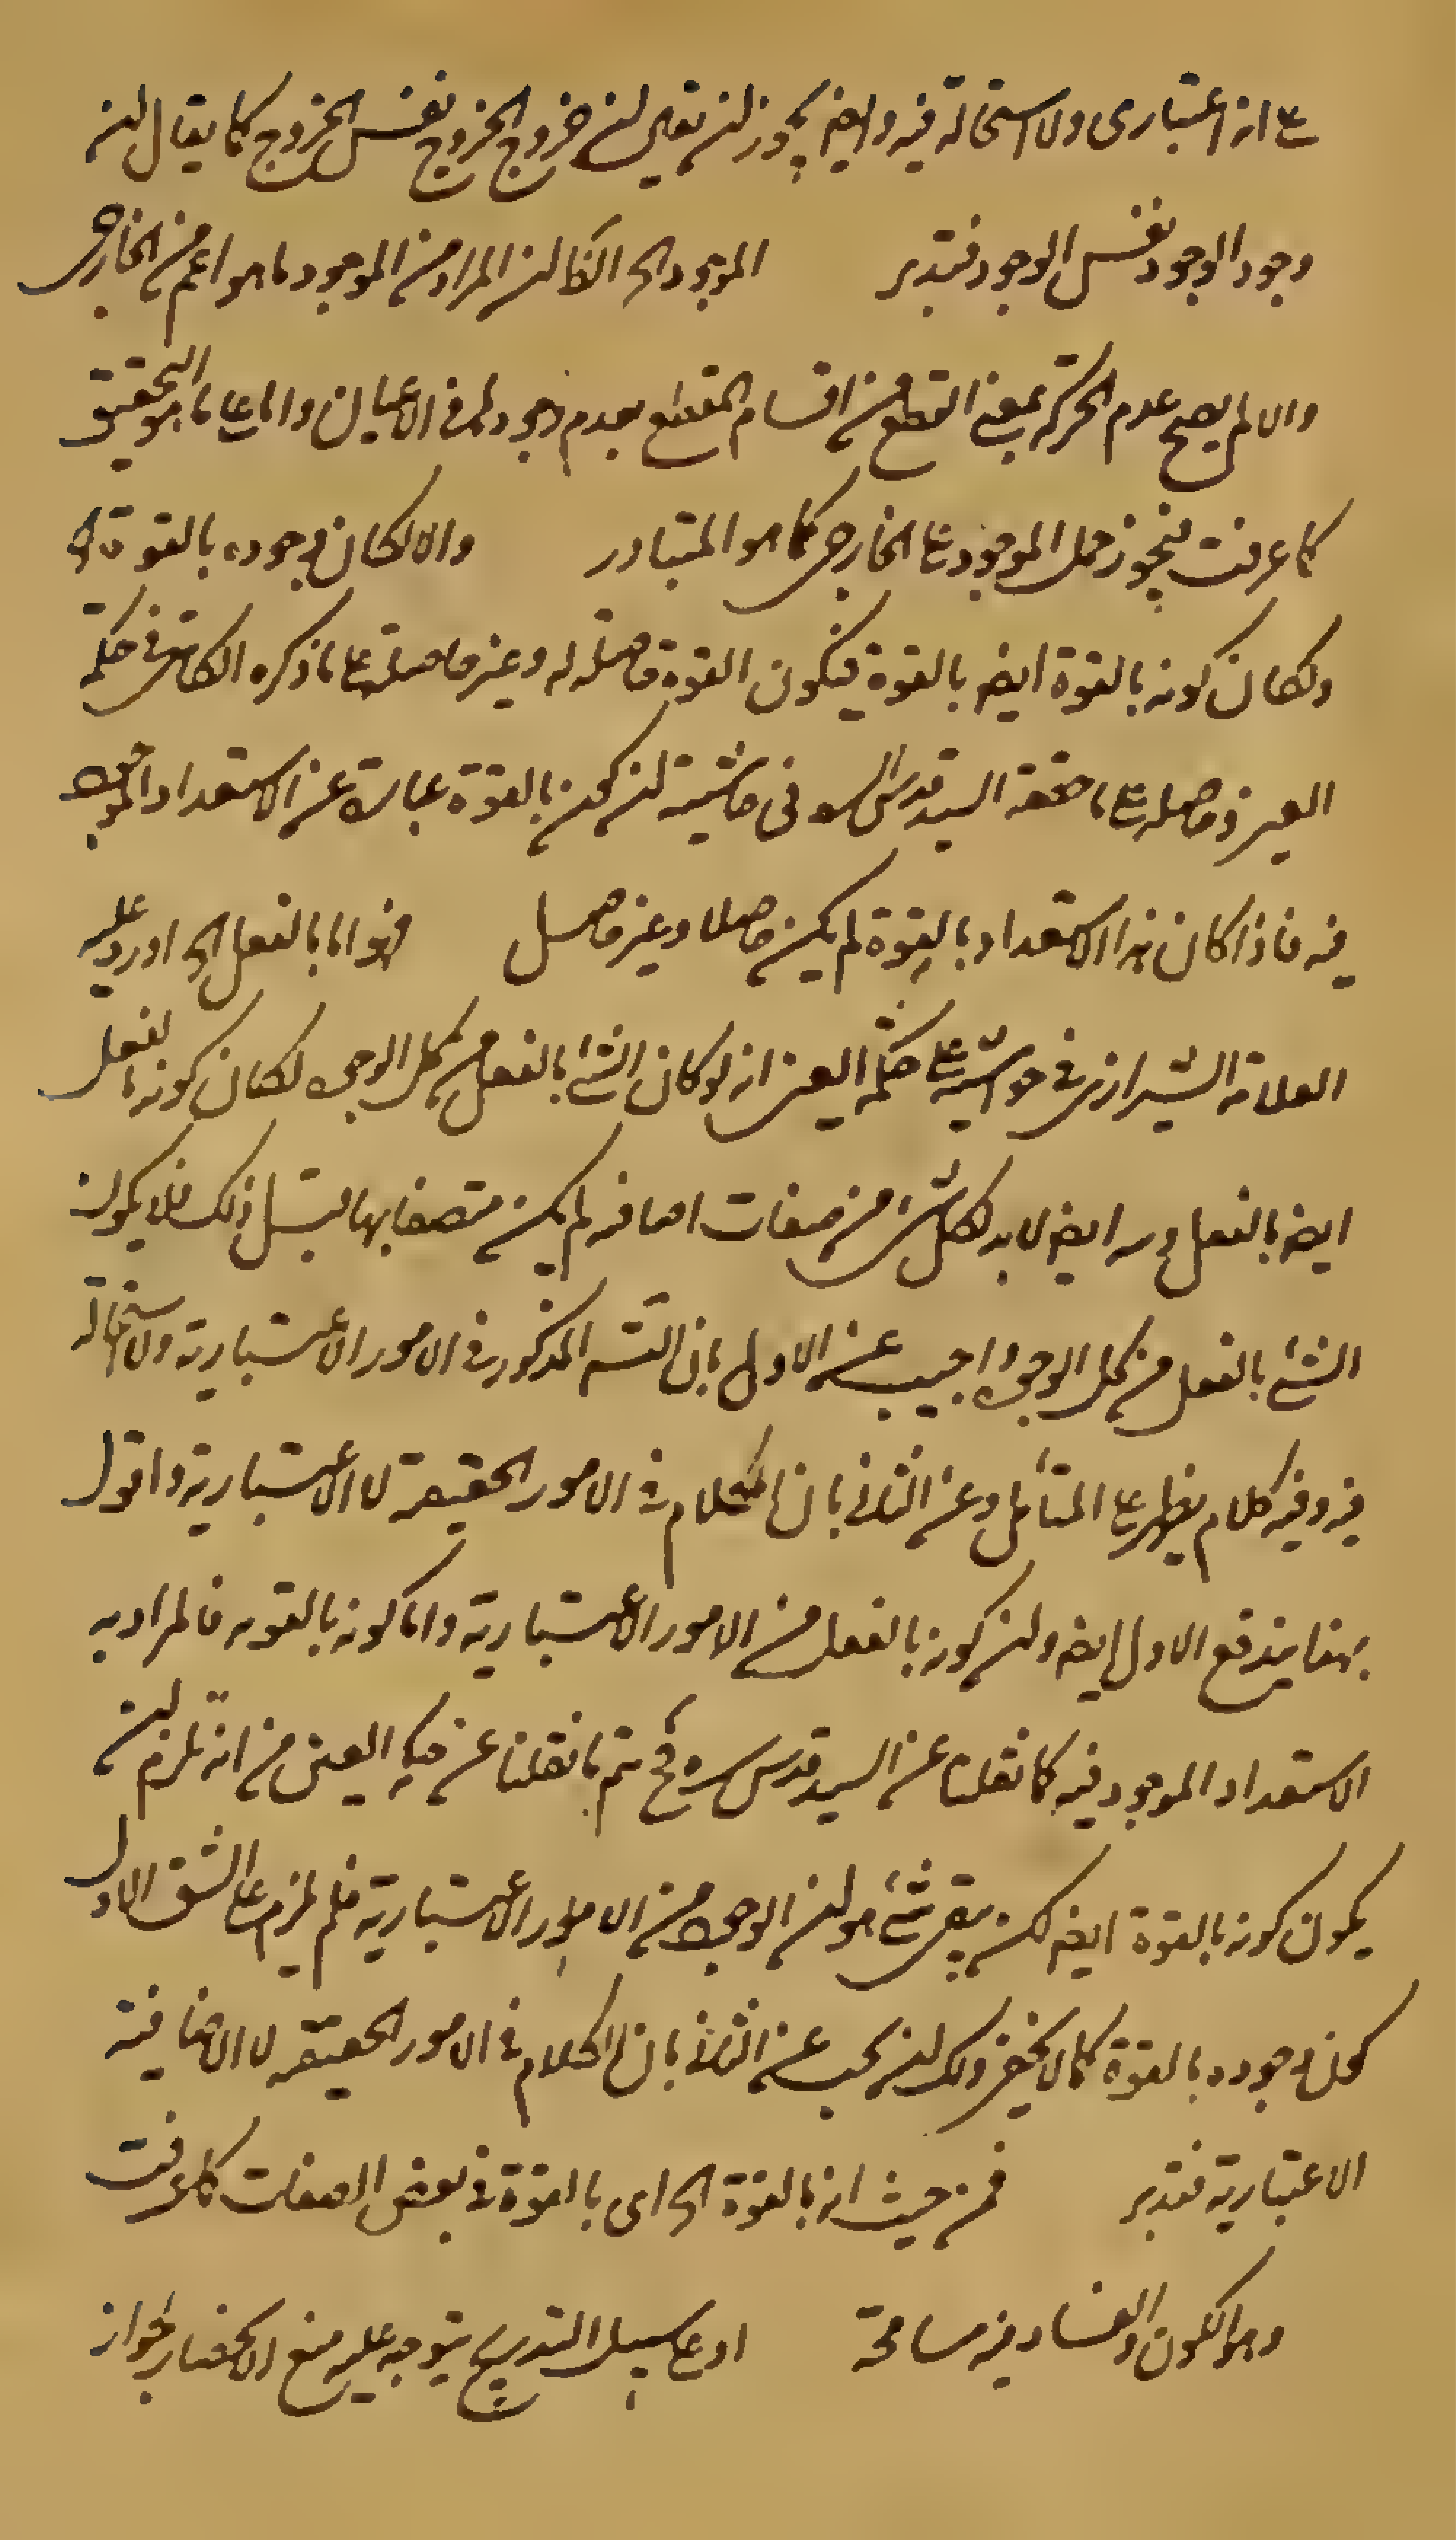 على انه اعتبارى ولا استحالة فيه وايضا يجوز ان يقال ان خروج الخروج نفس الخروج كما يقال ان
وجود الوجود نفس الوجود فتدبر الموجود الخ الظ ان المراد من الموجود ما هو اعم من الخارجى
والا لم يصح عدم الحركة بمعنى القطع من اقسام المقطع بعدم وجودها فى الاعيان واما على ما هو التحقيق
كما عرفت فيجوز حمل الموجود على الخارجى كما هو المتبادر والا لكان وجوده بالقوة الخ
ولكان كونه بالقوة ايضا بالقوة فيكون القوة حاصلة له وغير حاصلة على ما ذكره الكاتبى فى حكمة
العين وحاصله على ما حققه السيد قدس سره فى حاشيته ان كونه بالقوة عبارة عن الاستعداد الموجود
فيه فاذا كان هذا الاستعداد بالقوة لم يكن حاصلا وغير حاصل فهو اما بالفعل الخ اورد عليه
العلامة الشيرازى فى حواشيه على حكمة العين انه لو كان الشئ بالفعل من كل الوجوه لكان كونه بالفعل
ايضا بالفعل و ايضا لا بد لكل شئ من صفات اضافية لم يكن متصفا بها قبل ذلك فلا يكون
الشئ بالفعل من كل الوجوه واجيب عن الاول بان التسـ المذكور فى الامور الاعتبارية ولا استحالة
فيه وفيه كلام يظهر على المتأمل وعن الثانى بان الكلام فى الامور الحقيقية لا الاعتبارية واقول
بهذا يندفع الاول ايضا ولان كونه بالفعل من الامور الاعتبارية واما كونه بالقوة فالمراد به
الاستعداد الموجود فيه كما نقلنا عن السيد قدس سره فح يتم ما نقلنا عن حكمة العين من انه يلزم ان
يكون كونه بالقوة ايضا لكن بقى شئ هو ان الوجود من الامور الاعتبارية فلم يلزم على الشق الاول
كون وجوده بالقوة كما لا يخفى ولك ان تجيب عن الثانى بان الكلام فى الامور الحقيقية لا الاضافية
الاعتبارية فتدبر فمن حيث انه بالقوة الخ اى بالقوة فى بعض الصفات كما عرفت
وهو الكون والفساد فيه مسامحة او على سبيل التدريج يتوجه عليه منع الانحصار لجواز